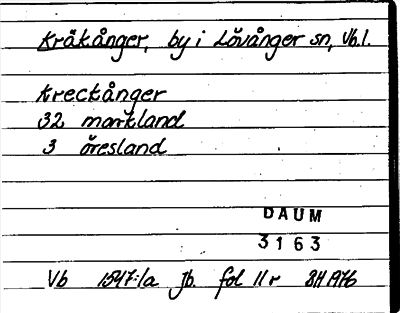 Kråkånger, by i Lövånger sn, Vb.l.
Kreckånger
32 markland
3 öresland
DAUM
3163
Vb 1547:1a Jb. fol 11r BH 1976